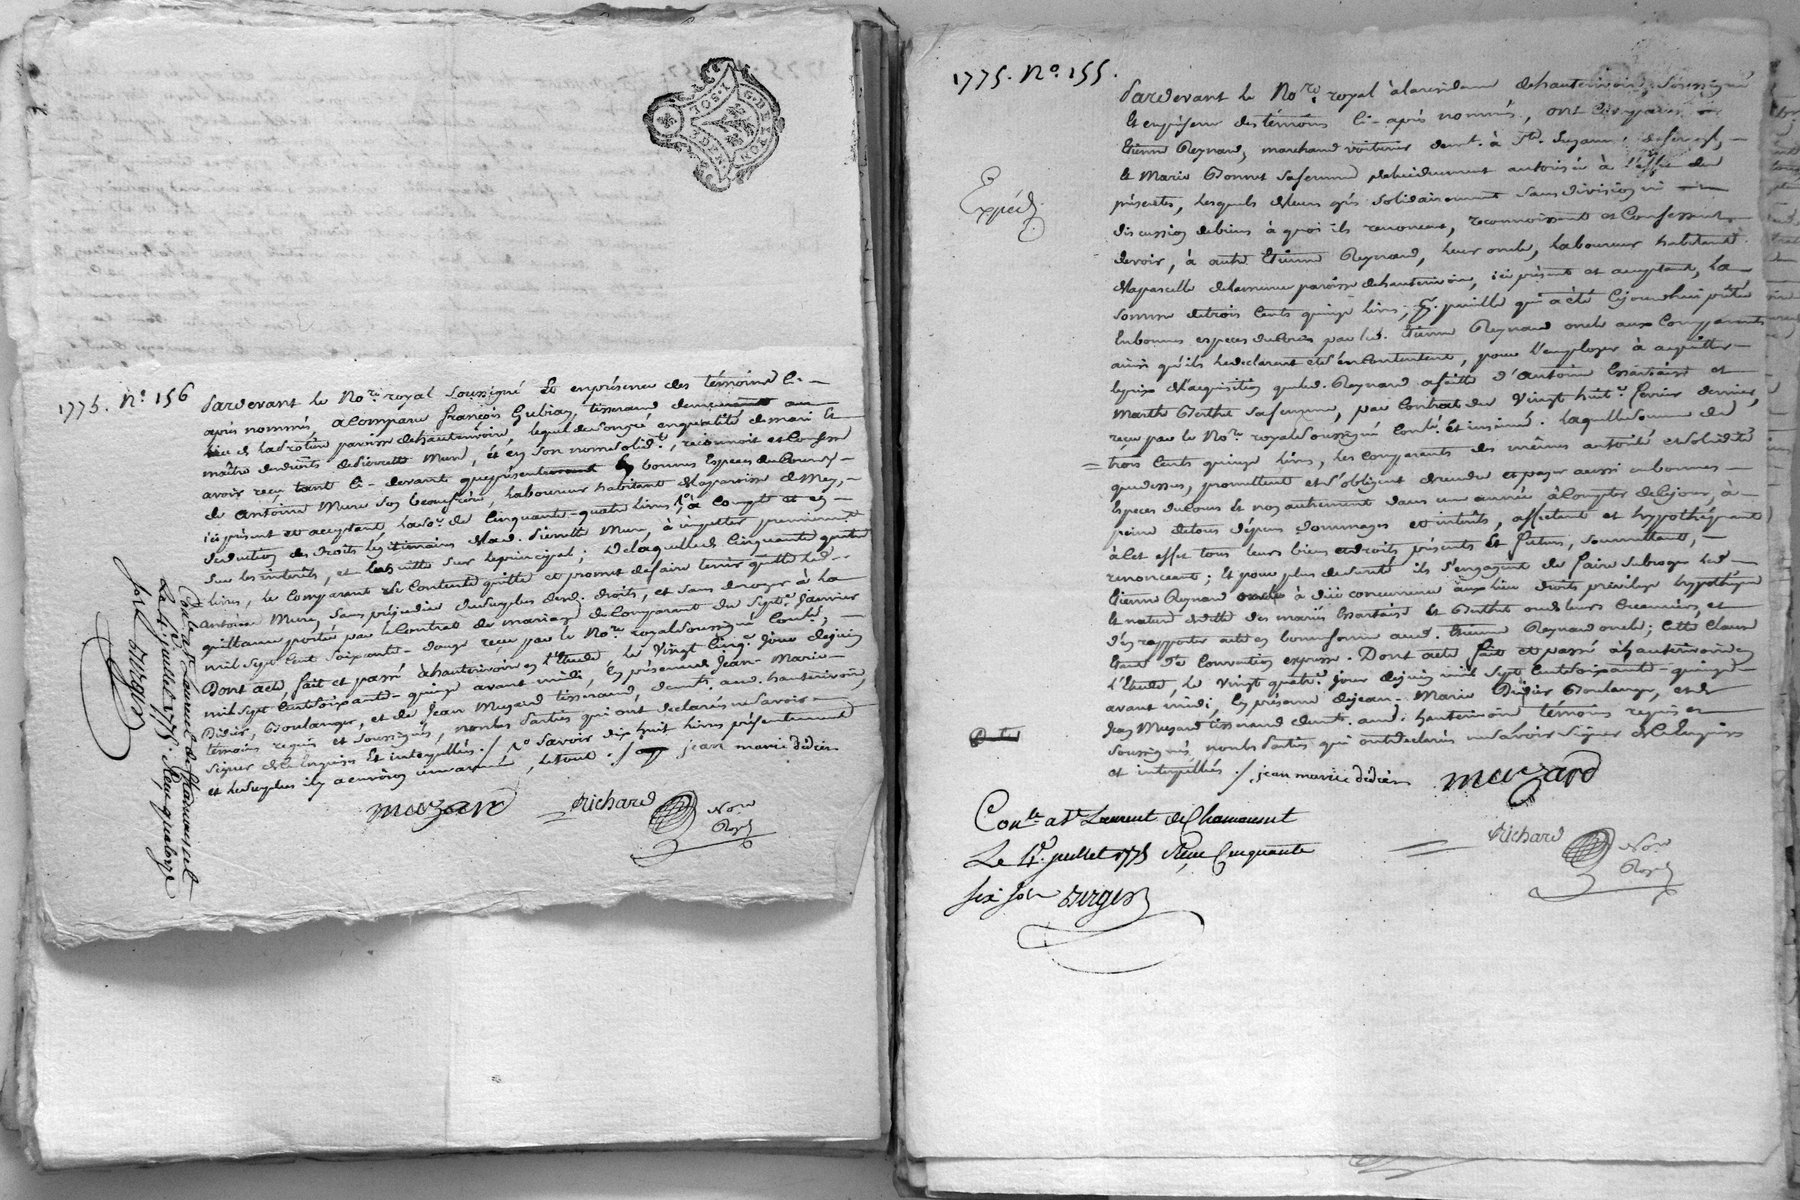 1 SOL
4 DEN
G. DE LYON
1775. N.º 156
Pardevant le No.re royal soussigné et en présence des témoins ci-
après nommés, a comparu françois Gubian, tisserand demeurant au
lieu de paroisse de hauterivoire, lequel de son gré en qualité de mari et
maître des droits de pierrette Mure, et en son nom solid.t, reconnoit et confesse
avoir reçu tant ci-devant que présentement en bonnes especes du Cours,
de Antoine Mure son beaufrère, laboureur habitant de la paroisse de Meys,
ici présent et acceptant, la so.e de Cinquante-quatre livres, à compte et en
déduction des droits légitimaires de lad. Pierrette Mure, à imputer premierement
sur les interêts, et ensuitte sur le principal; de laquelle de Cinquante quatre
livres, le Comparant se contente quitte et promet de faire tenir quitte led.
Antoine Mure, sans préjudice du surplus desd. droits, et sans déroger à la
quittance portée par le Contrat de mariage de Comparant du sept.e janvier
mil sept cent soixante-douze reçu par le No.re royal soussigné Con.lé,
Dont acte, fait et passé à hauterivoire en l'Etude, le vingt cinq.e jour de juin
mil sept cent soixante-quinze avant midi, en présence de Jean-Marie
Didier, Boulanger, et de Jean Muzard tisserand, demts. aud. hauterivoire,
témoins requis et soussignés, non les Parties qui ont déclaré ne savoir
signer de ce enquis et interpellés ./. savoir dix huit livres présentement
et le surplus il y a environ une année, le tout ./. jean marie didier
muzard Richard Nore
Royal
Conlé a St Laurent de Chamousset
Le 4. juillet 1775. Reçu quatorze
sols Burger
1775. N.º 155.
Pardevant le No.re royal à la résidence de hauterivoire, soussigné
et en présence des témoins ci-après nommés, ont comparu
Etienne Reynard, marchand voiturier demt. à Ste.
et Marie Bonnet sa femme de lui duement autorisée à l'effet des
présentes, lesquels de leurs grés solidairement sans division ni
discussion de biens à quoi ils renoncent, reconnoissent et confessent
devoir, à autre Etienne Reynard, leur oncle, laboureur habitant
de la même paroisse de hauterivoire, ici présent et acceptant, la
somme de trois cents quinze livres, pareille qui a été ce jourd'hui prêtée
en bonnes especes du Cours par led. Etienne Reynard oncle aux Comparants
ainsi qu'ils le déclarent et s'en contentent, pour l'employer à acquitter
le prix de l'acquisition que led. Reynard a faitte d'Antoine et
Marthe Berthet sa femme, par Contrat du vingt huit.e février dernier,
reçu par le No.re royal soussigné Con.lé et insinué. laquelle somme de
trois cents quinze livres, les comparants des mêmes autorité et solidité
que dessus, promettent et s'obligent de rendre et payer aussi en bonnes
especes du Cours et non autrement dans une année à compter de ce jour, à
peine de tous dépens dommages et interêts, affectant et hypothéquant
à cet effet tous leurs biens et droits présents et futurs, soumettant,
renonceant; et pour plus de sureté ils s'engagent de faire subroger led.
Etienne Reynard oncle à due concurrence aux lieu droits privilege hypothèque
et nature de dette des mariés et Berthet ou de leurs creanciers et
d'en rapporter acte en bonne forme aud. Etienne Reynard oncle; cette clause
étant de Convention expresse. Dont acte fait et passé à hauterivoire en
l'Etude, le vingt quatr.e jour de juin mil sept cent soixante-quinze
avant midi, en présence de jean-Marie Didier Boulanger, et de
Jean Muzard tisserand demts. aud. hauterivoire témoins requis et
soussignés, non les Parties qui ont déclaré ne savoir signer de ce enquis
et interpellés ./. jean marie didier muzard
Expédié
Conlé a St Laurent de Chamousset
Le 4. juillet 1775 Reçu Cinquante
six sols Burger
Richard Nore
Royal